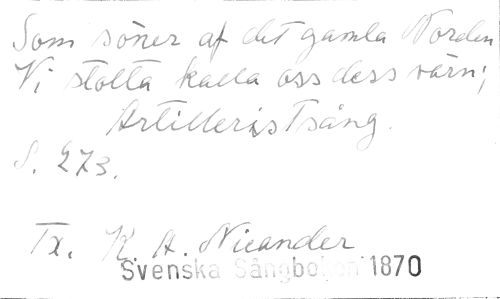 Som söner af det gamla Norden
Vi stolta kalla oss dess värn;
Artilleristsång.
S. 273.
Tx. K. A. Nicander
Svenska Sångboken 1870